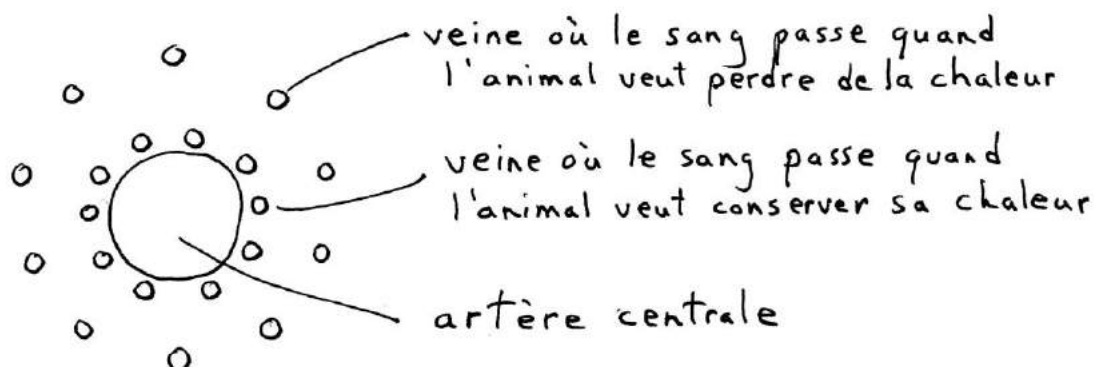 veine où le sang passe quand
l'animal veut perdre de la chaleur
veine où le sang passe quand
l'animal veut conserver sa chaleur
artère centrale